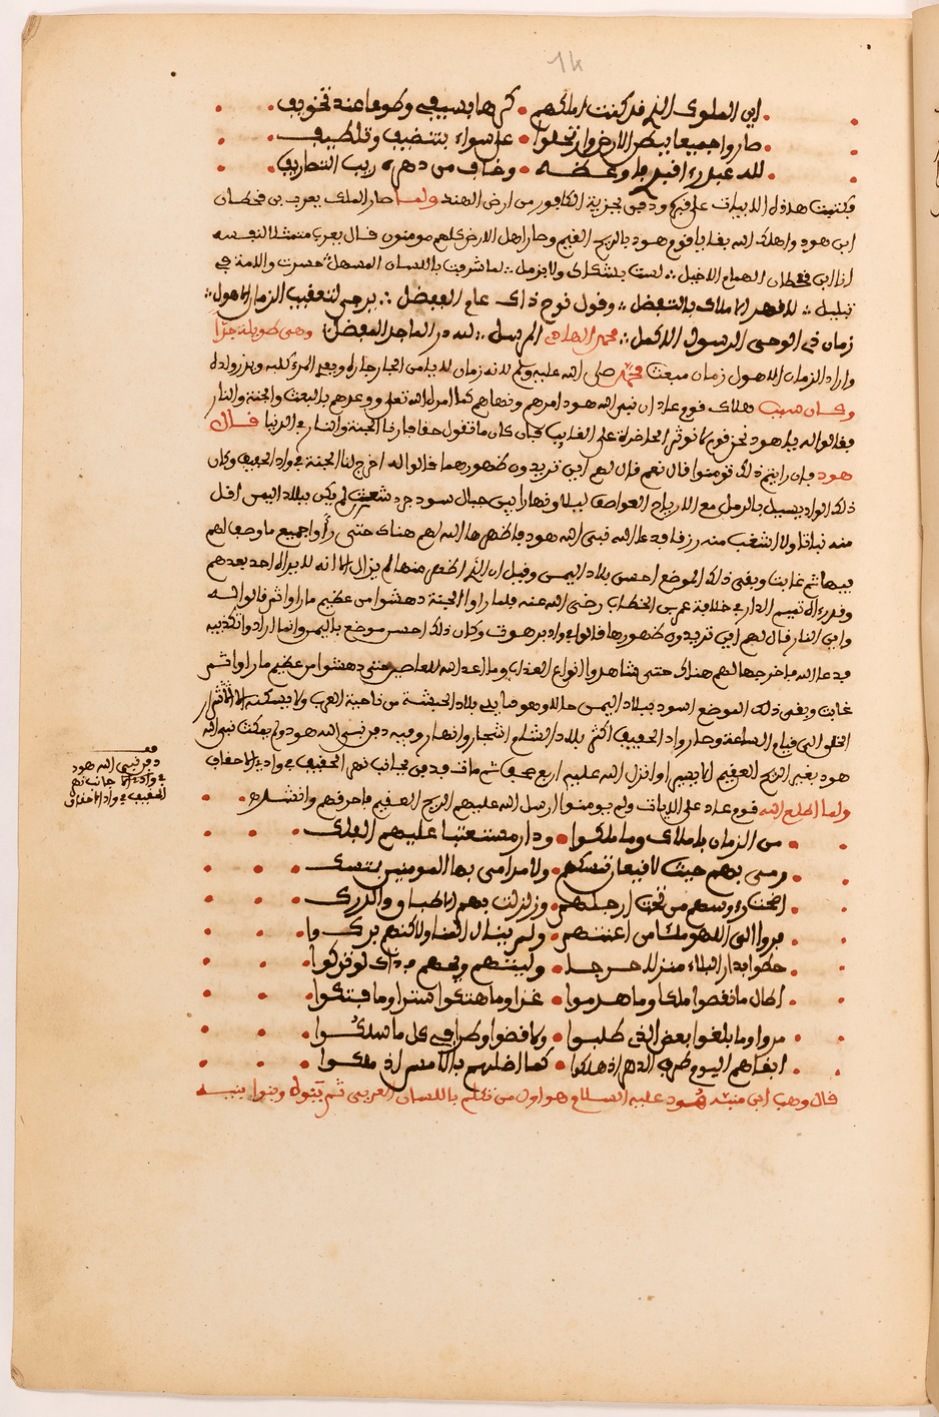 اين الملوك الذي قد كنت املكهم • كرها بسيفي وطوعا عند تخويف
صاروا جميعا ببطن الارض وارتحلوا • على سواء بتنضيب وتلطيف
لله عبد راى قبري ما وعظه • وخاف من دهره ريب التصاريف
فكتبت هذه الابيات على قبره ودفن بجزيرة الكافور من ارض الهند ولما صار الملك يعرب بن قحطان
ابن هود واهلك الله بقايا قوم هود بالريح العقيم وصار اهل الارض كلهم مومنون قال يعرب متمثلا لنفسه
انا ابن قحطان الهمام الاجيل ∴ لست بشكاك ولا بزمل ∴ لما شرفت باللسان المسهل ∴ حسرت والامة في
تبليل ∴ للافهر الاملاك بالتفضل ∴ وقول نوح ذاك علم الفيصل ∴ يرمى لتعقيب الزمان الاهول ∴
زمان في الوحي الرسول الاكمل ∴ محمد الهادي المرسل ∴ لله در الماجد المفضل وهي طويلة جدا
واراد الزمان الاهول زمان مبعث محمد صلى الله عليه وسلم لانه زمان لا يامن الجار جاره ويعد المرء كلبه ويذر ولده
وكان سبب هلاك قوم عاد ان نبي الله هود امرهم ونهاهم كما امره الله تعلى ووعدهم بالبعث والجنة والنار
فقالوا له يا هود نحن قوم لا نوثر الحاضر على الغايب فان كان ما تقول حقا فارنا الجنة والنار في الدنيا فقال
هود فان رايتم ذلك تومنوا قال نعم قال لهم اين تريدون ظهورهما قالوا له اخرج لنا الجنة في واد الحفيف وكان
ذلك الواد يسيل بالرمل مع الارياح العواصف ليلا ونهارا بين جبال سود جرد شعث لم يكن ببلاد اليمن اقل
منه نباتا ولا اشغب منه رزقا فدعا الله نبي الله هود فاظهرها الله لهم هناك حتى راوا جميع ما وصفا لهم
فيها ثم غابت وبقى ذلك الموضع احسن بلاد اليمن وقيل ان الذي اظهر منها لم يزال الا انه لا يراه احد بعدهم
وقد راه تميم الدار في خلافة عمر بن الخطاب رضي الله عنه فلما راوا الجنة دهشوا من عظيم ما راوا ثم قالوا له
واين النار قال لهم اين تريدون ظهورها قالوا في واد برهوت وكان ذلك احسن موضع باليمن وانما ارادوا تكذيبه
فدعا الله فاخرجها لهم هناك حتى شاهدوا انواع العذاب وما اعد الله للعاصين حتى دهشوا من عظيم ما راوا ثم
غابت وبقى ذلك الموضع اسود ببلاد اليمن حالك وهو مما يلي بلاد الحبشة من ناحية الغرب ولا يسكنه الا الاشرار
الى قيام الساعة وصار واد الحفيف اكثر بلاد الشام اشجار وانهار وفيه دفن نبي الله هود ولم يمكث نبي الله
هود بغير الريح العقيم الا يسيرا وانزل الله عليه اربع صحف ثم مات فدفن بجانب نهر الحفيف في واد الاحقاف
ولما اطلع الله قوم عاد على الايات ولم يومنوا ارسل الله عليهم الريح العقيم فاحرقهم وانشد
من الزمان باملاك وما ملكوا • ودار مستعتبا عليهم الفلك
رمى بهم حيث لا فيعان تمسكهم • ولا مرامى بها المومنين بتسك
اضحت رءوسهم من تحت ارجلهم • وزلزلت بهم الاطباق والدرك
فروا الى اللهو ملكا من اعنتهم • ولم ينال القنا ولاكنهم بركوا
حطوا بدار البلاء منزلا حرجا • وليتهم ويحهم في ذاك لو تركوا
اطال ما نقصوا ملكا وما هدموا • عزا وما هتكوا سترا وما فتكوا
مروا وما بلغوا بعض الذي طلبوا • وما قضوا وطرا في كل ما سلكوا
ابقاهم اليوم وطرف الدهر اذ هلكوا • كما اظلهم بالامس اذ ملكوا
قال وهب ابن منبه هود عليه السلام هو اول من تكلم باللسان العربي ثم بنوه وبنوا بنيه
قف
دفن نبي الله هود
في واد جانب نهر
الحفيف في واد الاحقاف